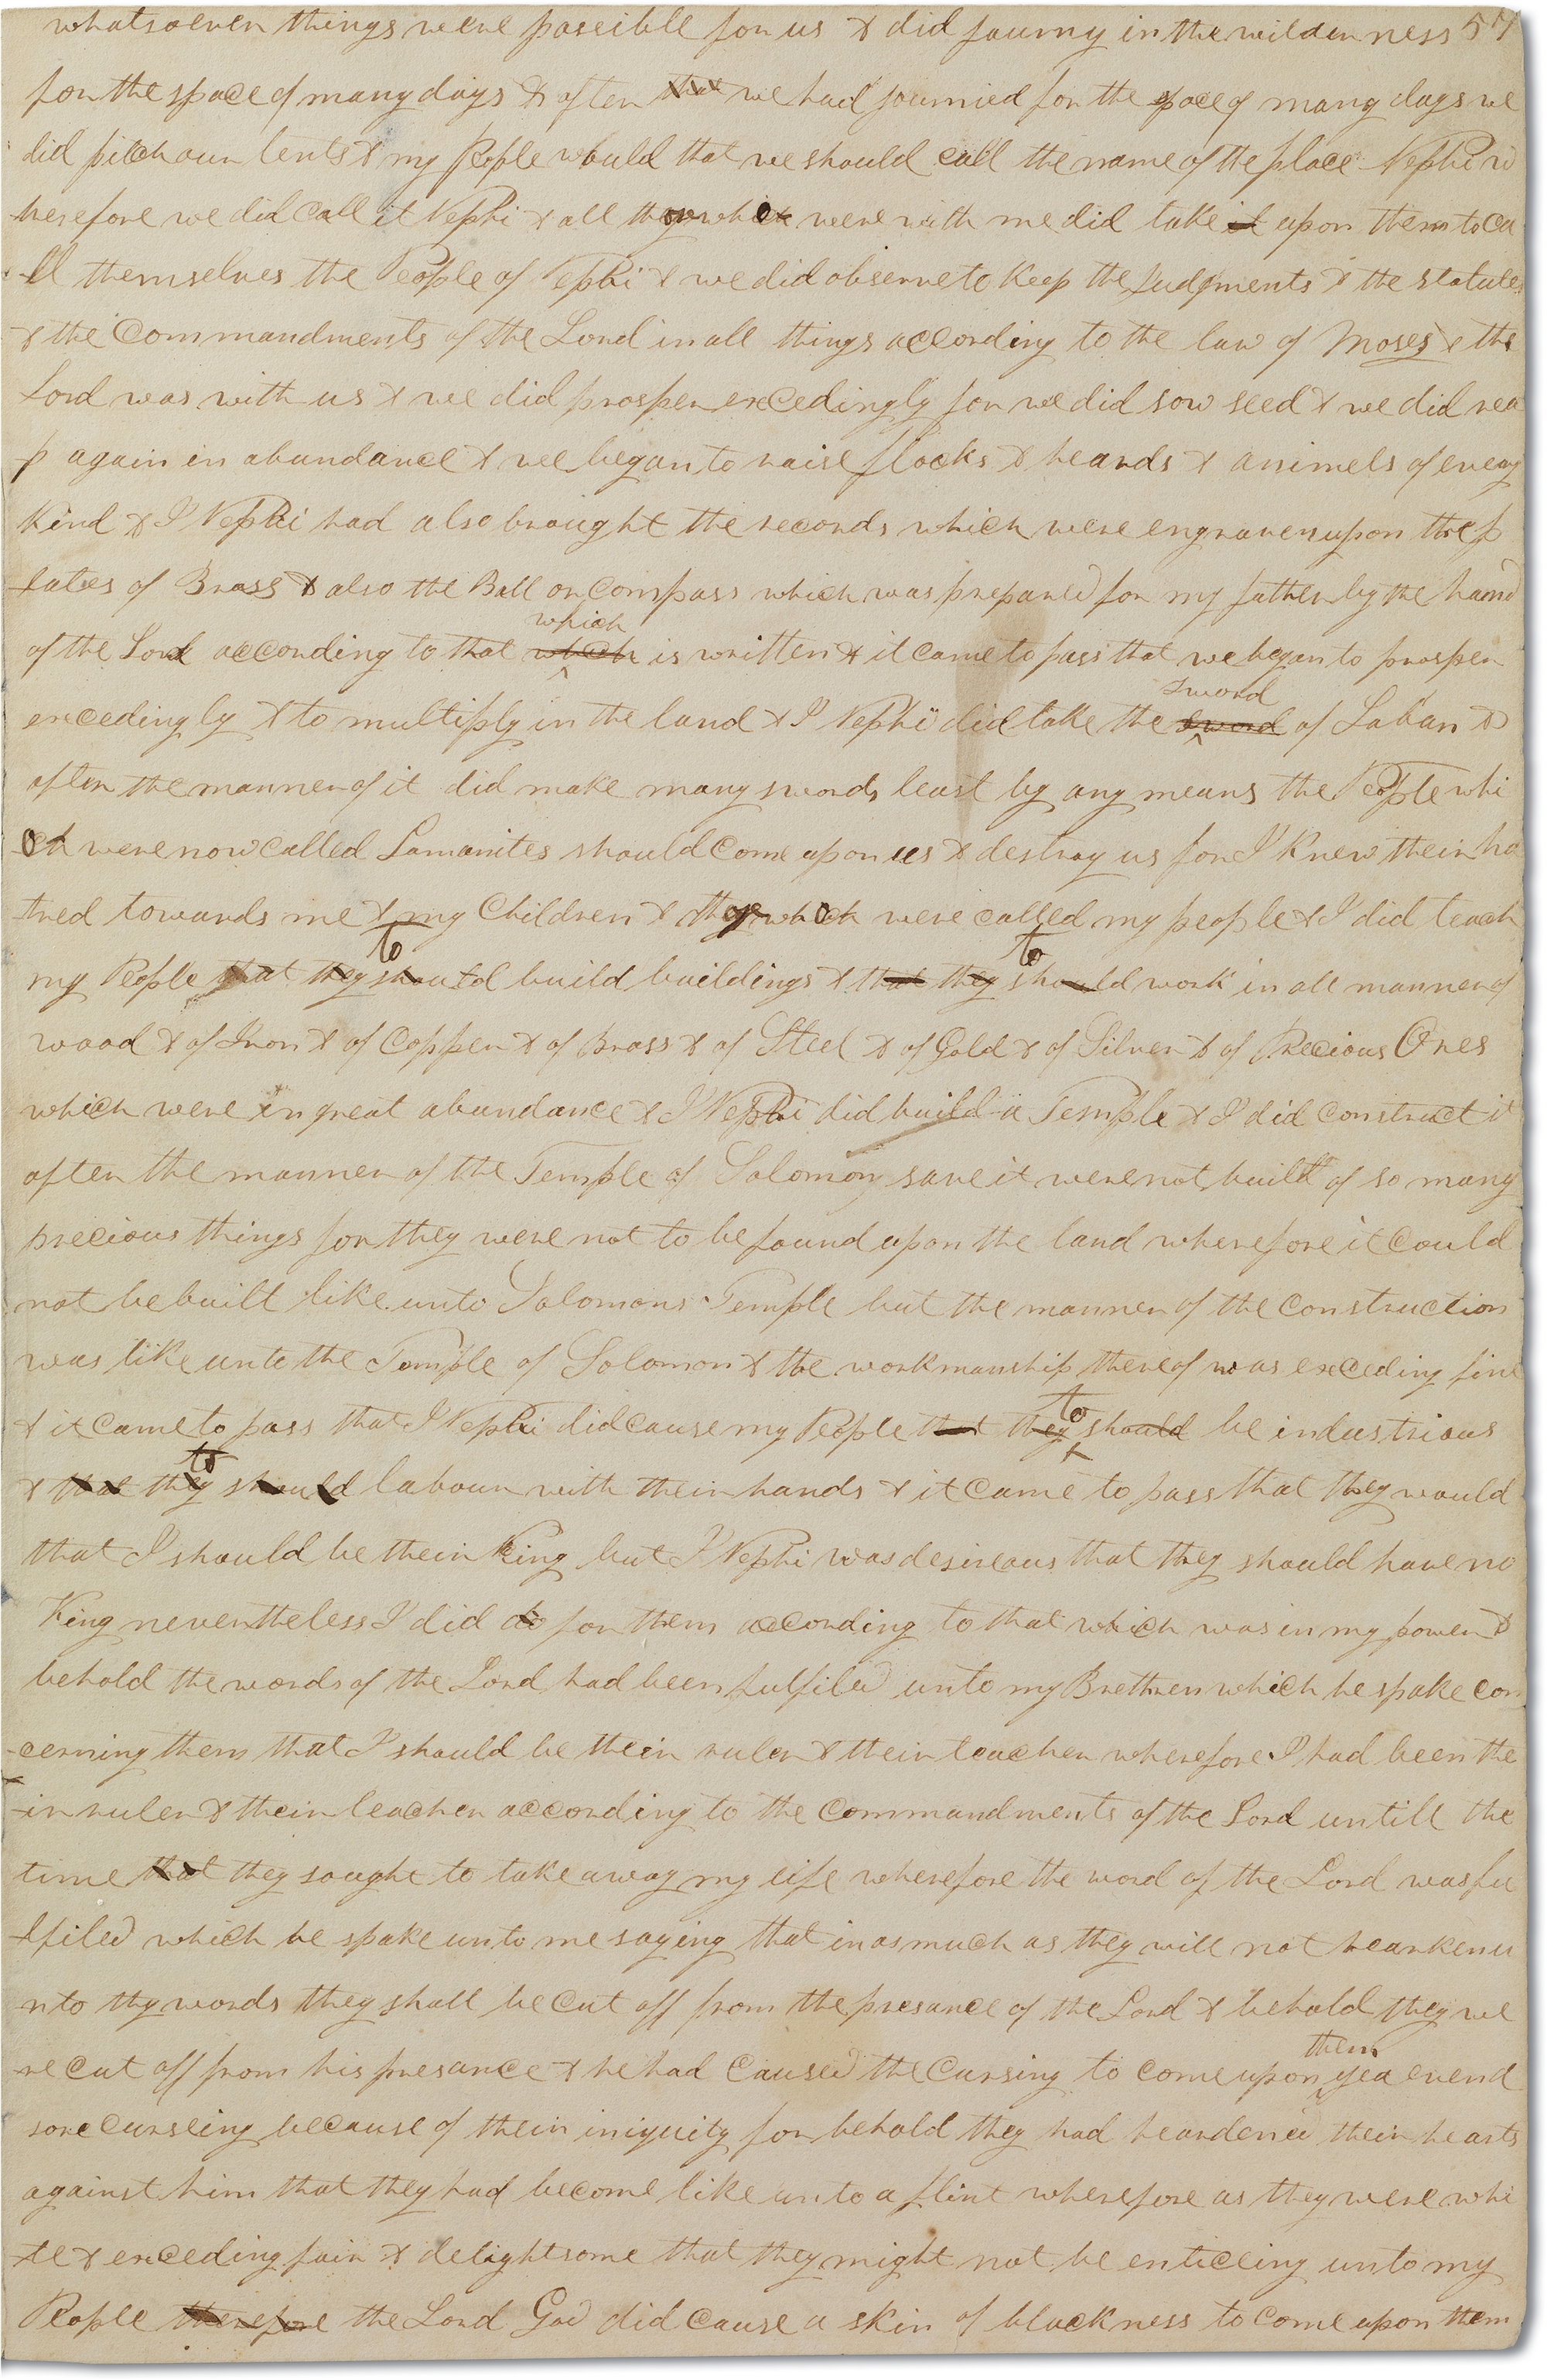 whatsoever things were posseible for us & did journy in the wilderness 57
for the space of many days & after that we had journied for the space of many days we
did pitch our tents & my People would that we should call the name of the place Nephi w
herefore we did call it Nephi & all they which were with me did take it upon them to ca
-ll themselves the People of Nephi & we did observe to keep the Judgments & the statutes
& the Commandments of the Lord in all things according to the law of Moses & the
Lord was with us & we did prosper excedingly for we did sow seed & we did rea
p again in abundance & we began to raise flocks & heards & animels of evry
kind & I Nephi had also brought the records which were engraven upon the p
-lates of Brass & also the Ball or compass which was prepared for my father by the hand
which
of the Lord according to that which is written & it came to pass that we began to prosper
sword
excedingly & to multiply in the land & I Nephi did take the sword of Laban &
after the manner of it did make many swords least by any means the People whi
-ch were now called Lamanites should come upon us & destroy us for I knew their ha
-tred towards me & my Children & they which were called my people & I did teach
to to
my People that they should build buildings & that they should work in all manner of
wood & of Iron & of Copper & of Brass & of Steel & of Gold & of Silver & of Precious Ores
which were in great abundance & I Nephi did build a Temple & I did construct it
after the manner of the Temple of Solomon save it were not built of so many
precious things for they were not to be found upon the land wherefore it could
not be built like unto Solomons Temple but the manner of the construction
was like unto the Temple of Solomon & the workmanship thereof was exceding fine
to
& it came to pass that I Nephi did cause my People that they should be industrious
to
& that they should labour with their hands & it came to pass that they would
that I should be their King but I Nephi was desireous that they should have no
King nevertheless I did do for them according to that which was in my power &
behold the words of the Lord had been fulfiled unto my Brethren which he spake con
-cerning them that I should be their ruler & their teacher wherefore I had been the
-ir ruler & their teacher according to the commandments of the Lord untill the
time that they sought to take away my life wherefore the word of the Lord was fu
-lfiled which he spake unto me saying that inasmuch as they will not hearken u
nto thy words they shall be cut off from the presance of the Lord & behold they we
them
-re cut off from his presance & he had caused the cursing to come upon yea even a
sore curseing because of their iniquity for behold they had heardened their hearts
against him that they had become like unto a flint wherefore as they were whi
-te & exceding fair & delightsome that they might not be enticeing unto my
People therefore the Lord God did cause a skin of blackness to come upon them